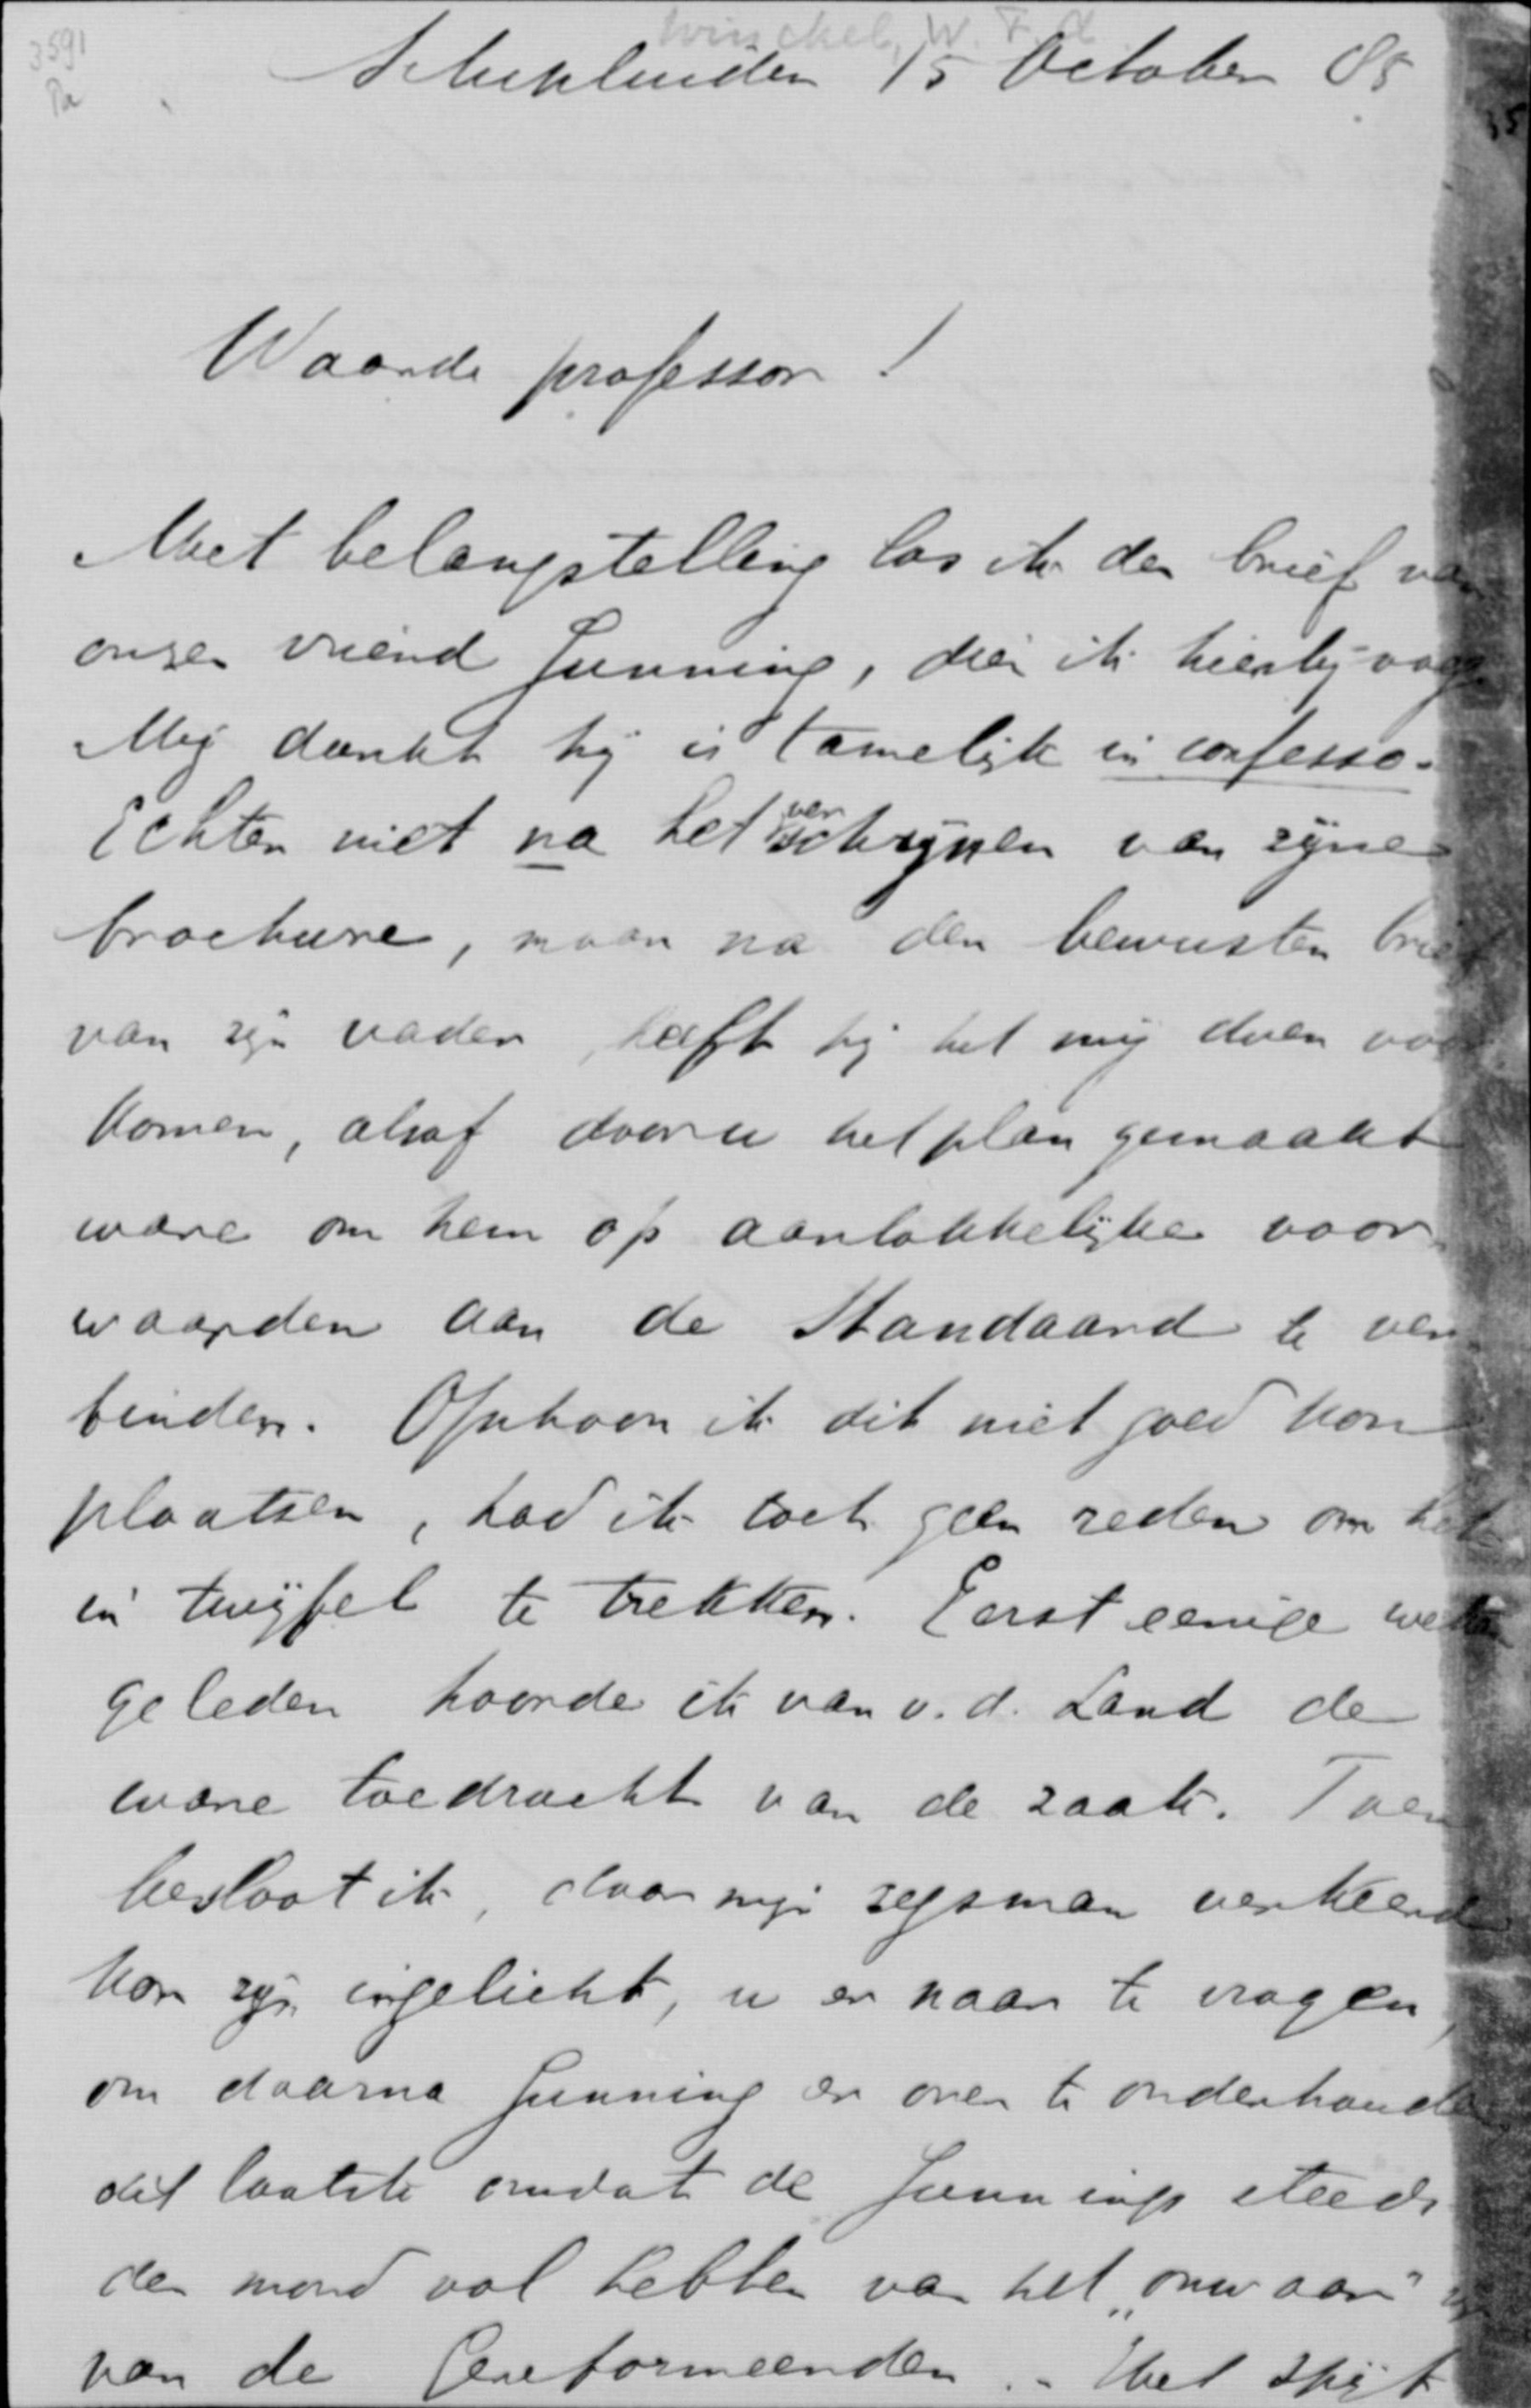 3591
Pa
Winckel, W. F. A.
Schipluiden 15 October 85
Waarde professor!
Met belangstelling las ik den brief van
onzen vriend Gunning, dien ik hierbij voeg
Mij dunkt hij is tamelijk in confesso.
Echter niet na het verschijnen van zijne
brochure, maar na den bewusten brief
van zijn vader, heeft hij het mij doen voor
komen, alsof door u het plan gemaakt
ware om hem op aanlokkelijke voor
waarden aan de Standaard te ver
binden. Ofschoon ik dit niet goed kon
plaatsen, had ik toch geen reden om het
in twijfel te trekken. Eerst eenige weken
geleden hoorde ik van v. d. Land de
ware toedracht van de zaak. Toen
besloot ik, daar mijn zegsman verkeerd
kon zijn ingelicht, u er naar te vragen,
om daarna Gunning er over te onderhouden
dit laatste omdat de Gunnings steeds
den mond vol hebben van het „onwaar"
van de Gereformeerden. - Het spijt